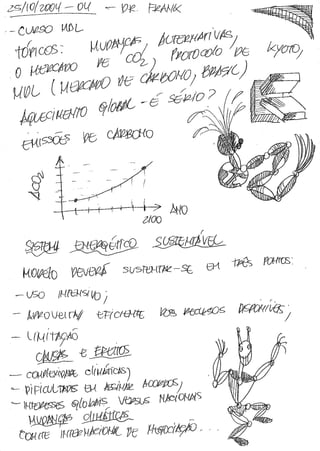 25/10/2004 - 04 - DR. FRANK
- CURSO MDL
TÓPICOS: MUDANÇAS, ALTERNATIVAS,
O MERCADO DE CO2, PROTOCOLO DE KYOTO,
MDL (MERCADO DE CARBONO, BRASIL)
AQUECIMENTO GLOBAL - É SÉRIO?
EMISSÕES DE CARBONO
ΔCO2
ANO
2100
SISTEMA ENERGÉTICO SUSTENTÁVEL
MODELO DEVERÁ SUSTENTAR-SE EM TRÊS PONTOS:
- USO INTENSIVO;
- APROVEITAR EFICIENTE DOS RECURSOS DISPONÍVEIS;
- LIMITAÇÃO
CAUSAS E EFEITOS
- COMPLEXIDADE CLIMÁTICAS;
- DIFICULTADES EM ASSINAR ACORDOS,
- INTERESSES GLOBAIS VERSUS NACIONAIS
MUDANÇAS CLIMÁTICAS
COMITE INTERNACIONAL DE NEGOCIAÇÃO...